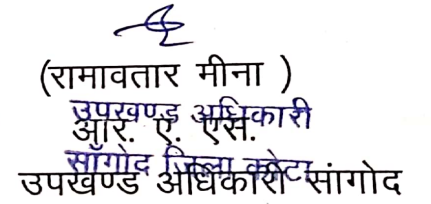 (रामावतार मीना )
उपखण्ड अधिकारी
आर. ए. एस.
सॉंगोद जिला कोटा
उपखण्ड अधिकारी सांगोद